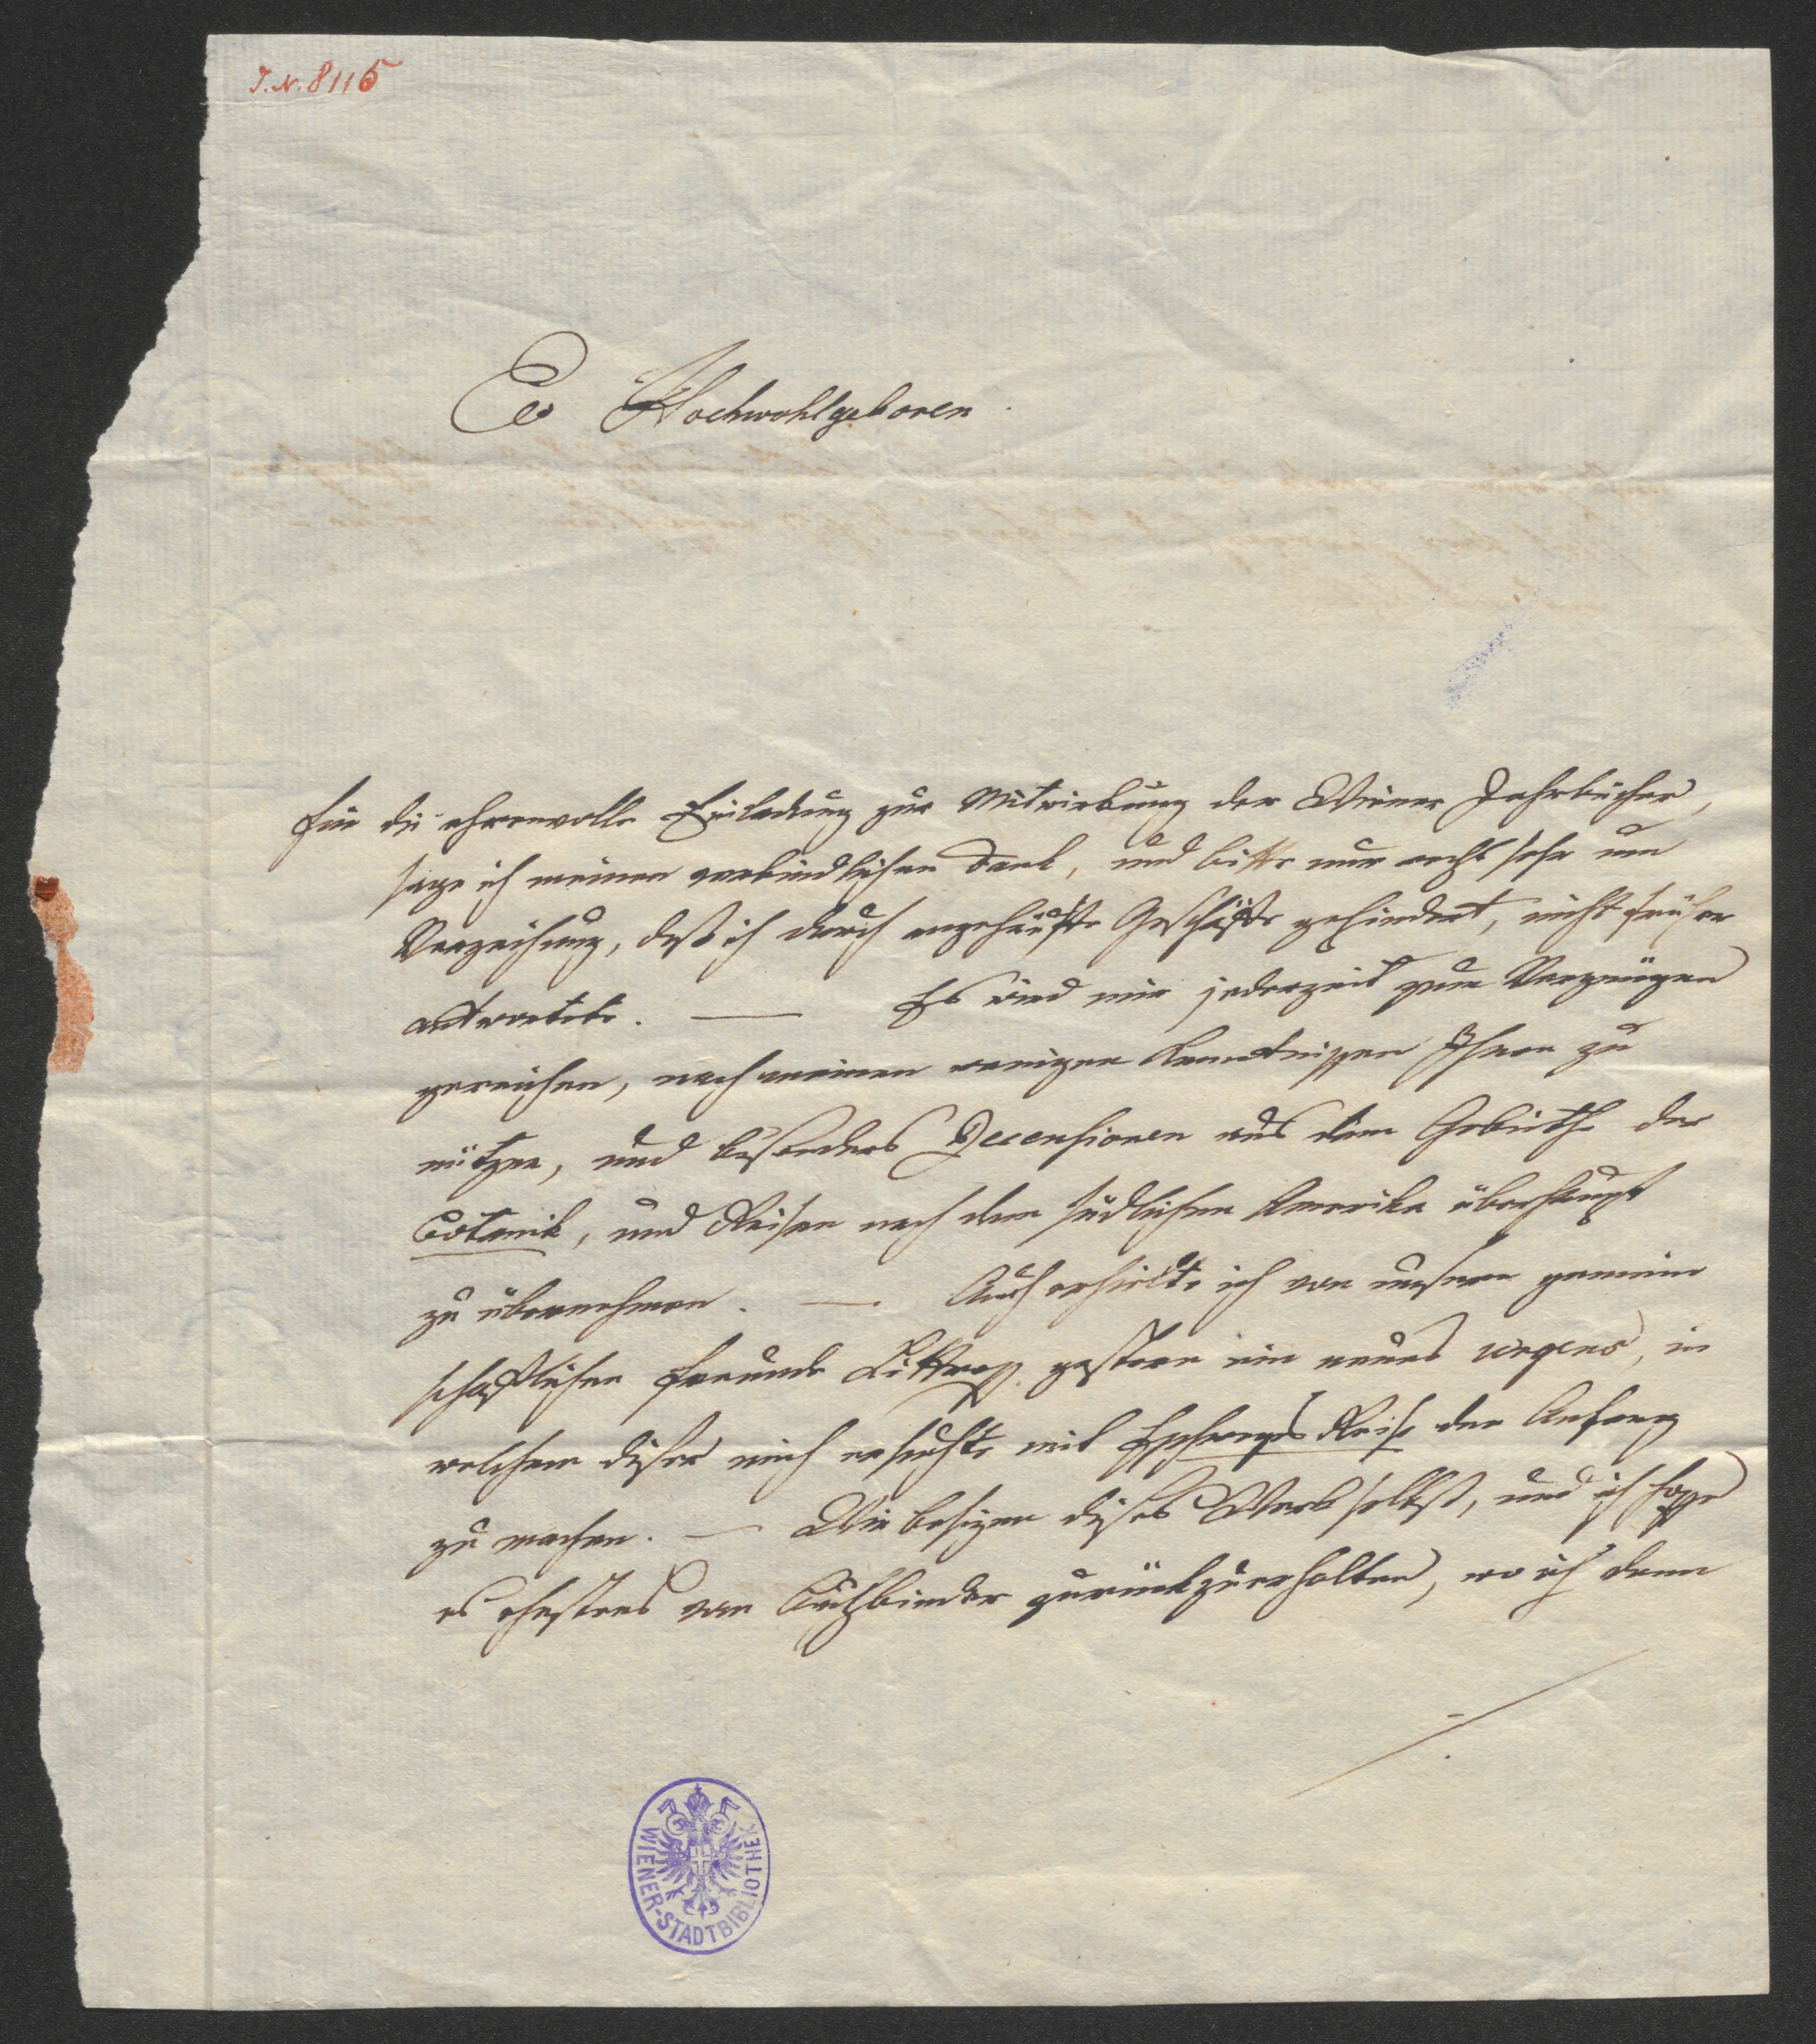 I.N. 8115
Ew Hochwohlgeboren
Für die ehrenvolle Einladung zur Mitwirkung der Wiener Jahrbücher,
sage ich meinen verbindlichen Dank, und bitte nur recht sehr um
Verzeihung, daß ich durch angehäufte Geschäfte gehindert, nicht früher
antwortete. — Es wird mir jederzeit zum Vergnügen
gereichen, nach meinen wenigen Kenntnissen Ihnen zu
nützen, und besonders Recensionen aus dem Gebiethe der
Botanik, und Reisen nach dem südlichen Amerika überhaupt
zu übernehmen. — Auch erhielte ich von unserm gemein
schaftlichen Freunde Littrow gestern ein neues urgens, in
welchem dieser mich ersuchte mit Eschweges Reise den Anfang
zu machen. — Wir besitzen dieses Werk selbst, und ich hoffe
es ehestens vom Buchbinder zurückzuerhalten, wo ich dann
WIENER-STADTBIBLIOTHEK